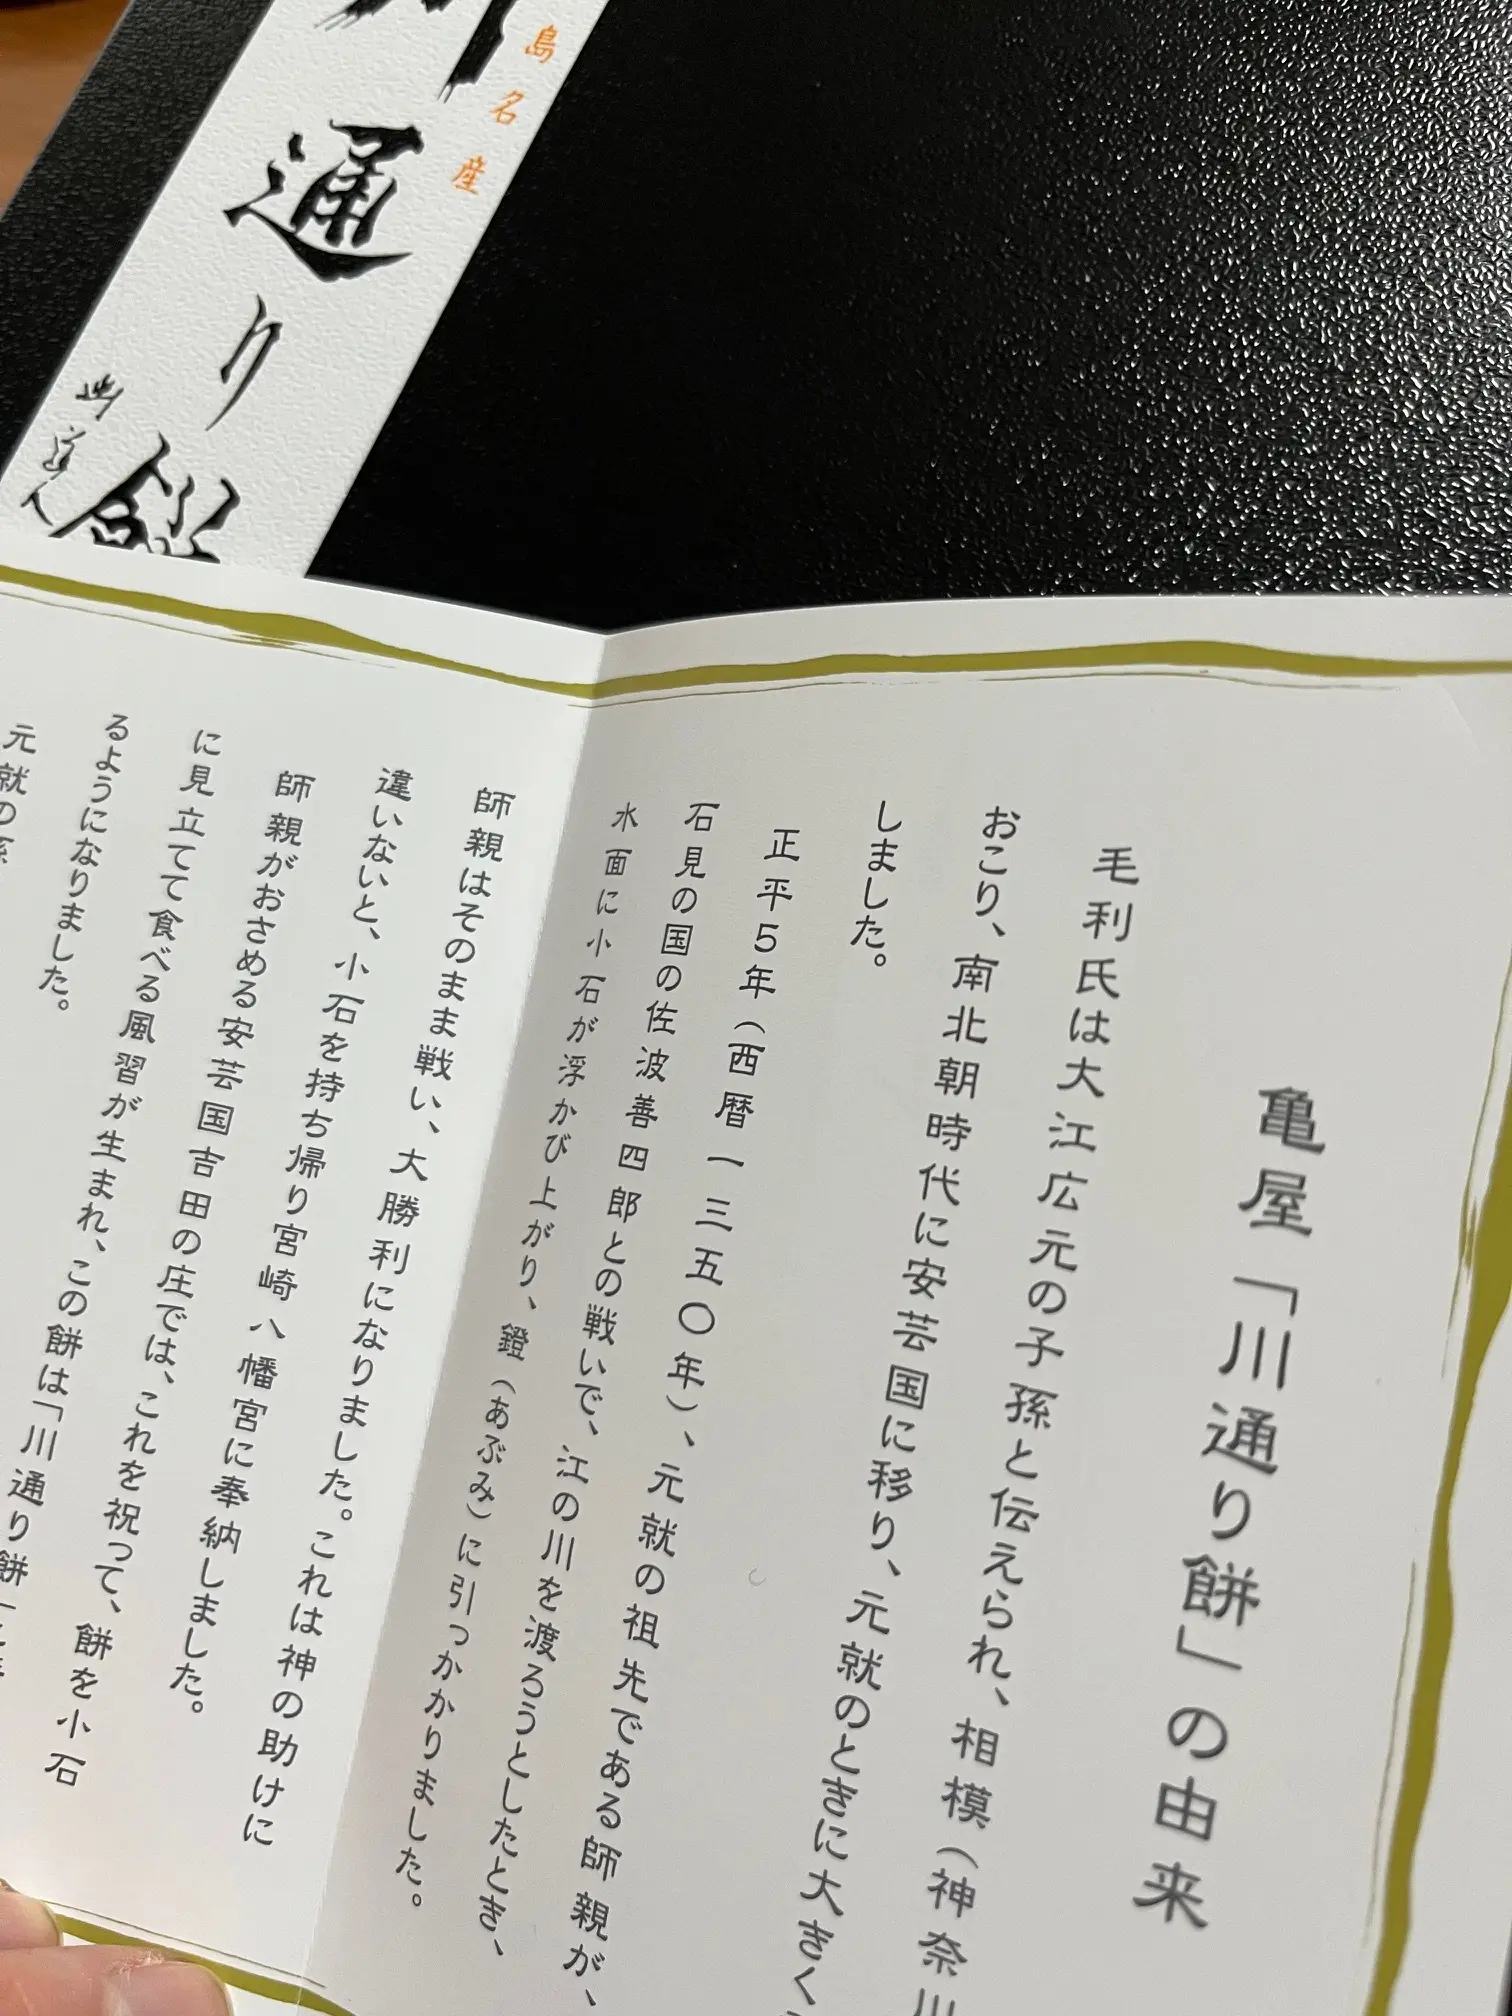 島名産
川通り餅
亀屋「川通り餅」の由来
毛利氏は大江広元の子孫と伝えられ、相模（神奈川
おこり、南北朝時代に安芸国に移り、元就のときに大きく
しました。
正平5年（西暦一三五〇年）、元就の祖先である師親が、
石見の国の佐波善四郎との戦いで、江の川を渡ろうとしたとき、
水面に小石が浮かび上がり、鐙（あぶみ）に引っかかりました。
師親はそのまま戦い、大勝利になりました。これは神の助けに
違いないと、小石を持ち帰り宮崎八幡宮に奉納しました。
師親がおさめる安芸国吉田の庄では、これを祝って、餅を小石
に見立てて食べる風習が生まれ、この餅は「川通り餅」
るようになりました。
元就の孫